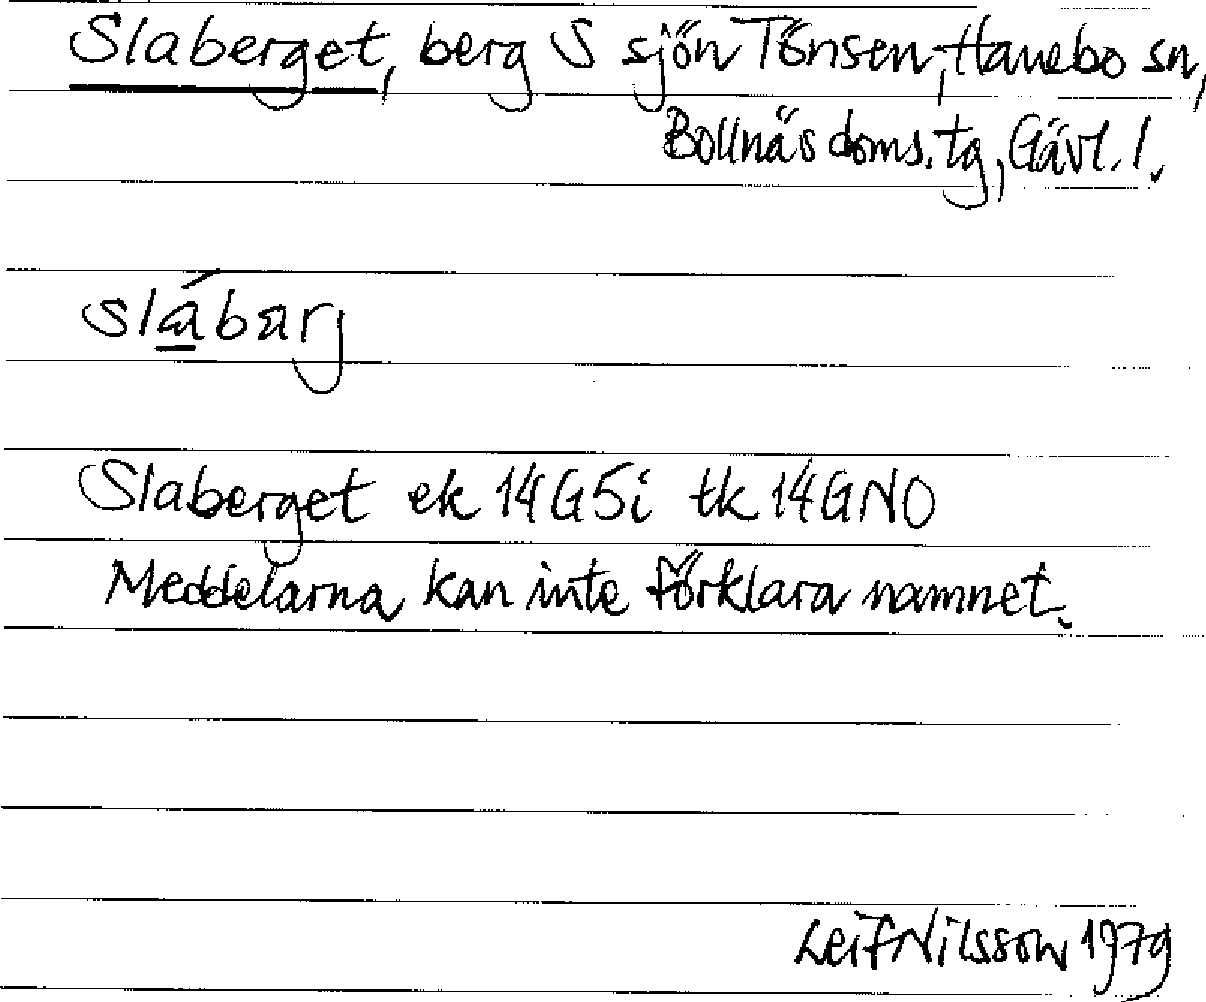 Slaberget, berg S sjön Tönsen, Hanebo sn,
Bollnäs doms.tg, Gävl. l.
slábarj
Slaberget ek 14G5i tk 14GNO
Meddelarna kan inte förklara namnet.
Leif Nilsson 1979